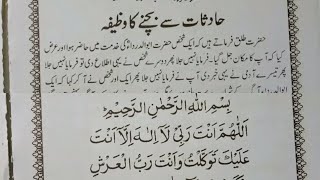 حادثات سے بچنے کا وظیفہ
حضرت طلق فرماتے ہیں کہ ایک شخص حضرت ابوالدرداءؓ کی خدمت میں حاضر ہوا اور عرض
کیا کہ آپ کا مکان جل گیا۔ فرمایا نہیں جلا پھر دوسرے شخص نے یہی اطلاع دی تو فرمایا نہیں جلا
پھر تیسرے آدمی نے یہی خبر دی آپ نے فرمایا نہیں جلا پھر ایک اور شخص نے آ کر کہا کہ اے
بِسْمِ اللهِ الرَّحْمٰنِ الرَّحِيْمِ
اَللّٰهُمَّ اَنْتَ رَبِّيْ لَا اِلٰهَ اِلَّا اَنْتَ
عَلَيْكَ تَوَكَّلْتُ وَاَنْتَ رَبُّ الْعَرْشِ